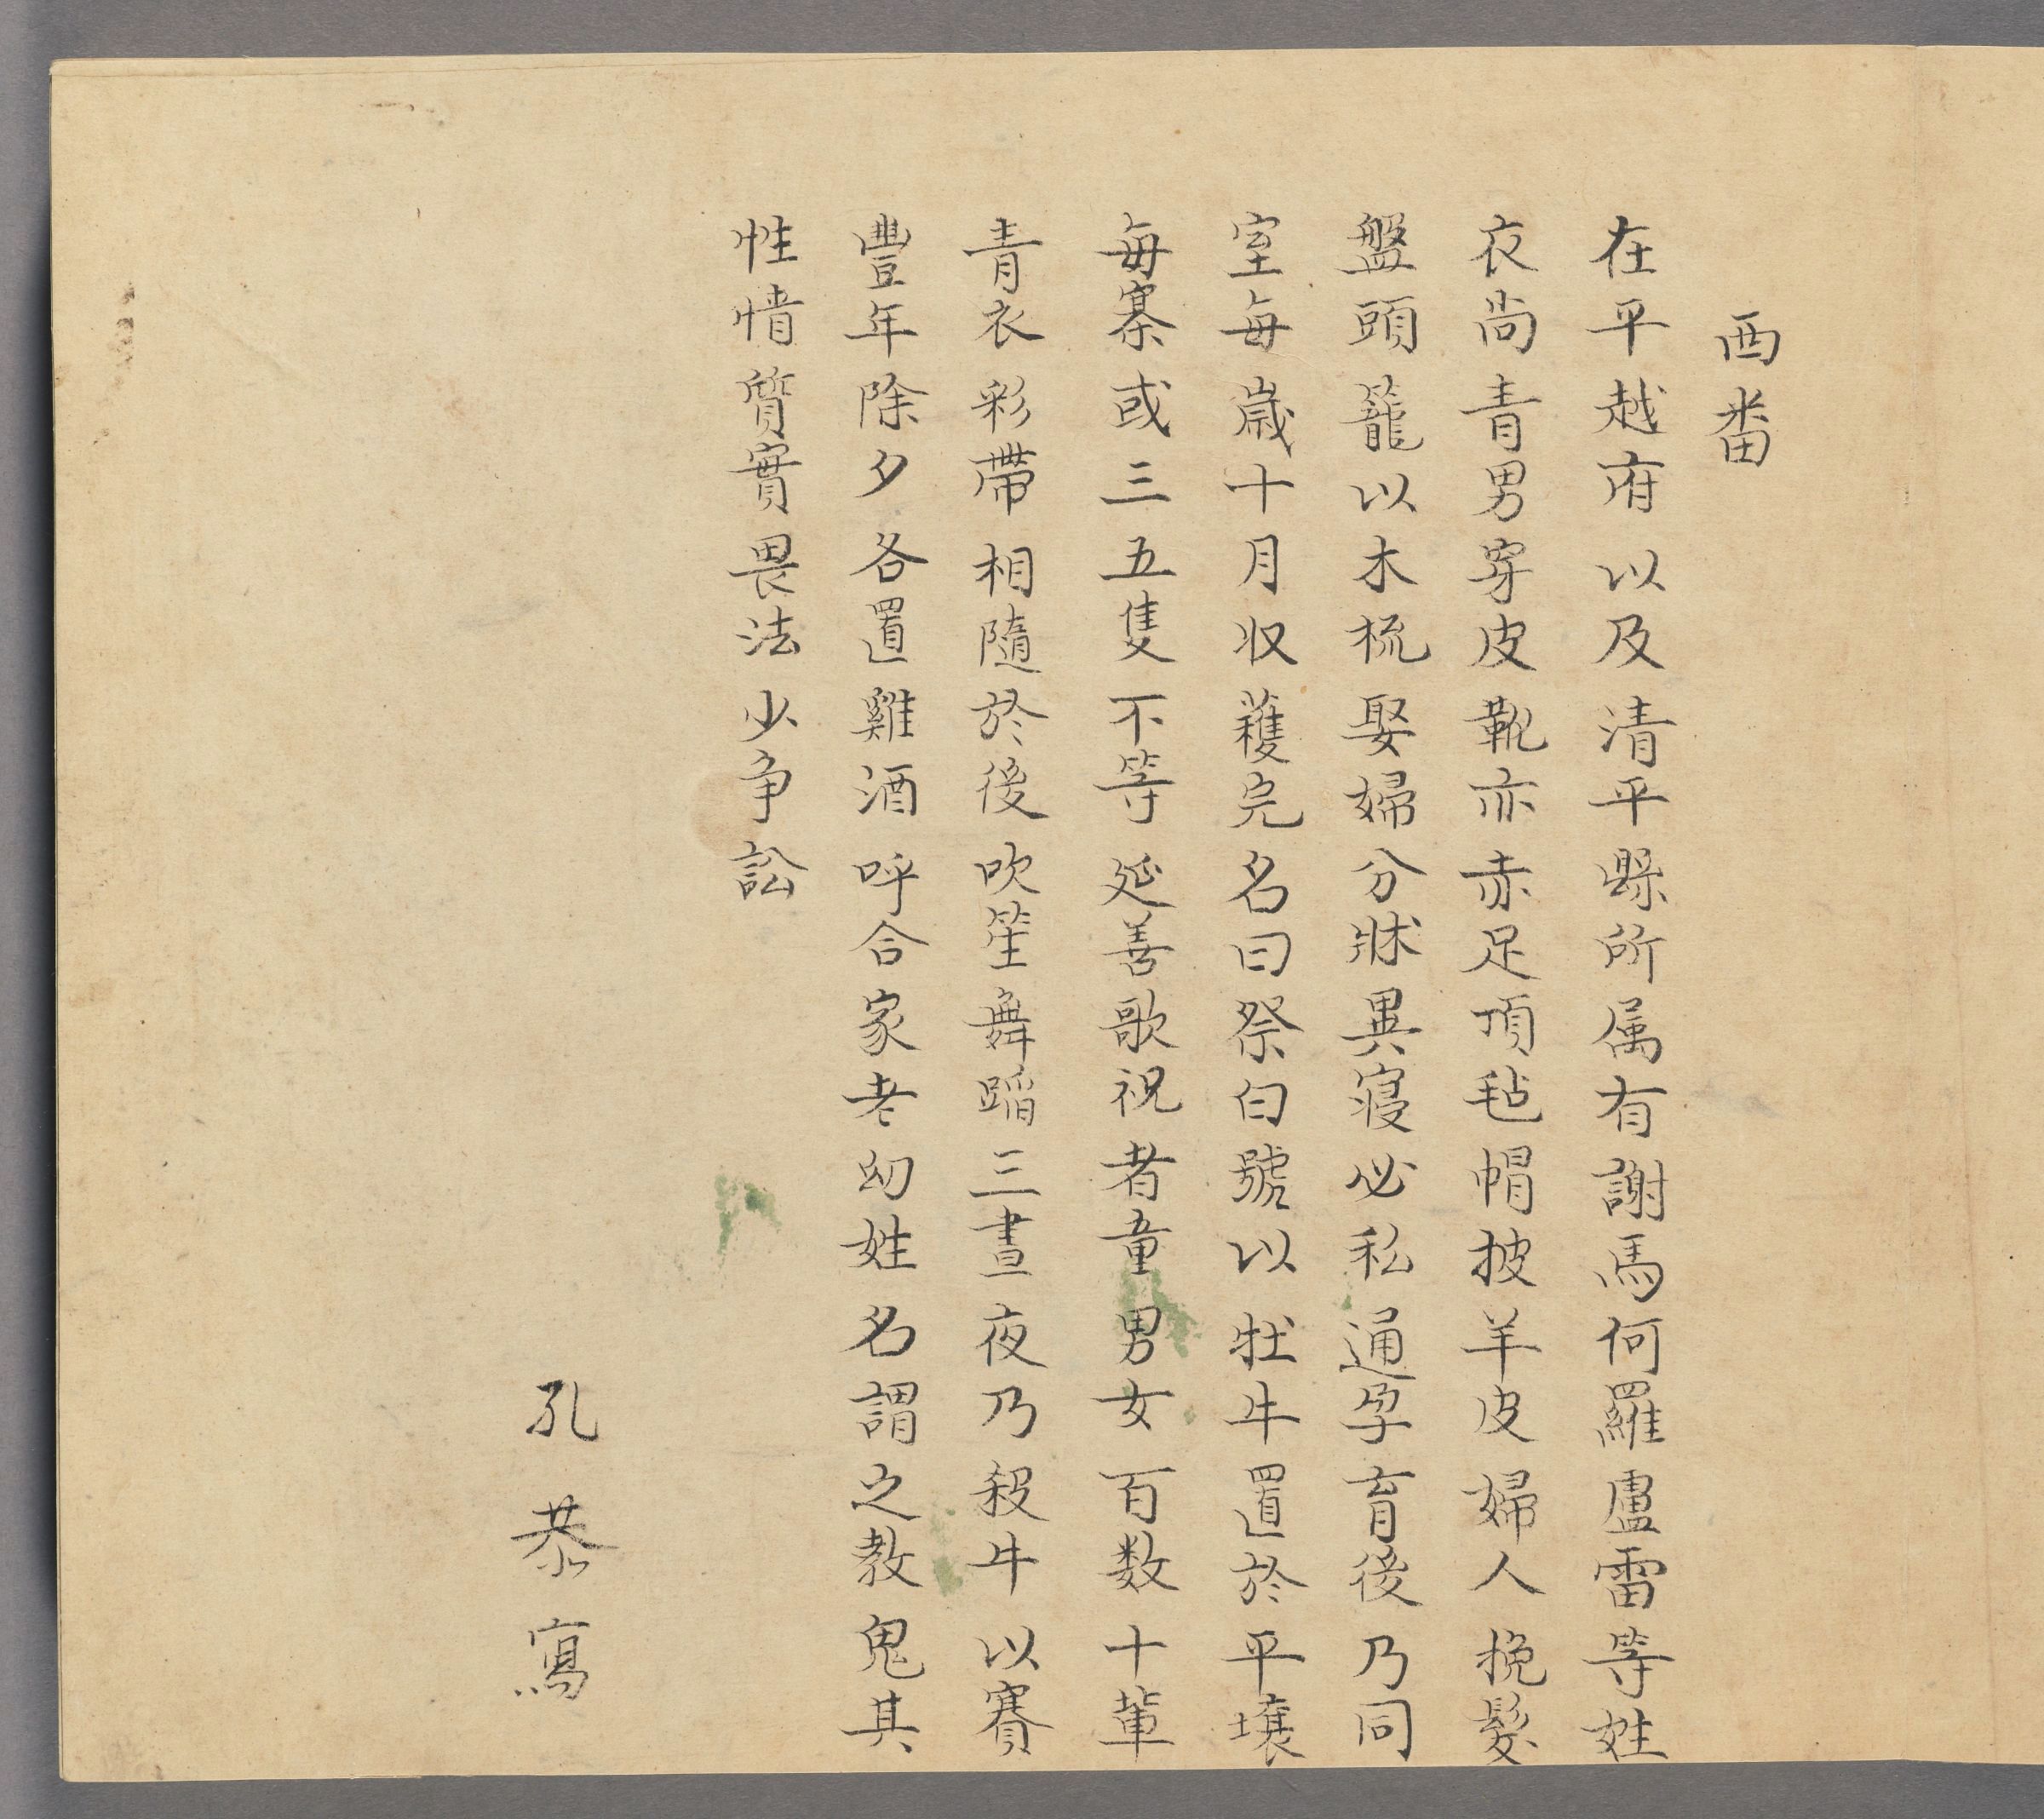 西番
在平越府以及清平縣所属有謝馬何羅盧雷等姓
夜尚青男穿皮靴亦赤足頂毡帽披羊皮婦人挽髮
盤頭籠以木梳娶婦分牀異寢必私通孕育後乃同
室每歲十月收穫完名曰祭白號以牡牛置於平壤
每寨或三五隻不等延善歌祝者童男女百数十輩
青衣彩帶相隨於後吹笙舞蹈三晝夜乃殺牛以賽
豐年除夕各置雞酒呼合家老幼姓名謂之教鬼其
性情質實畏法少争訟
孔恭寫